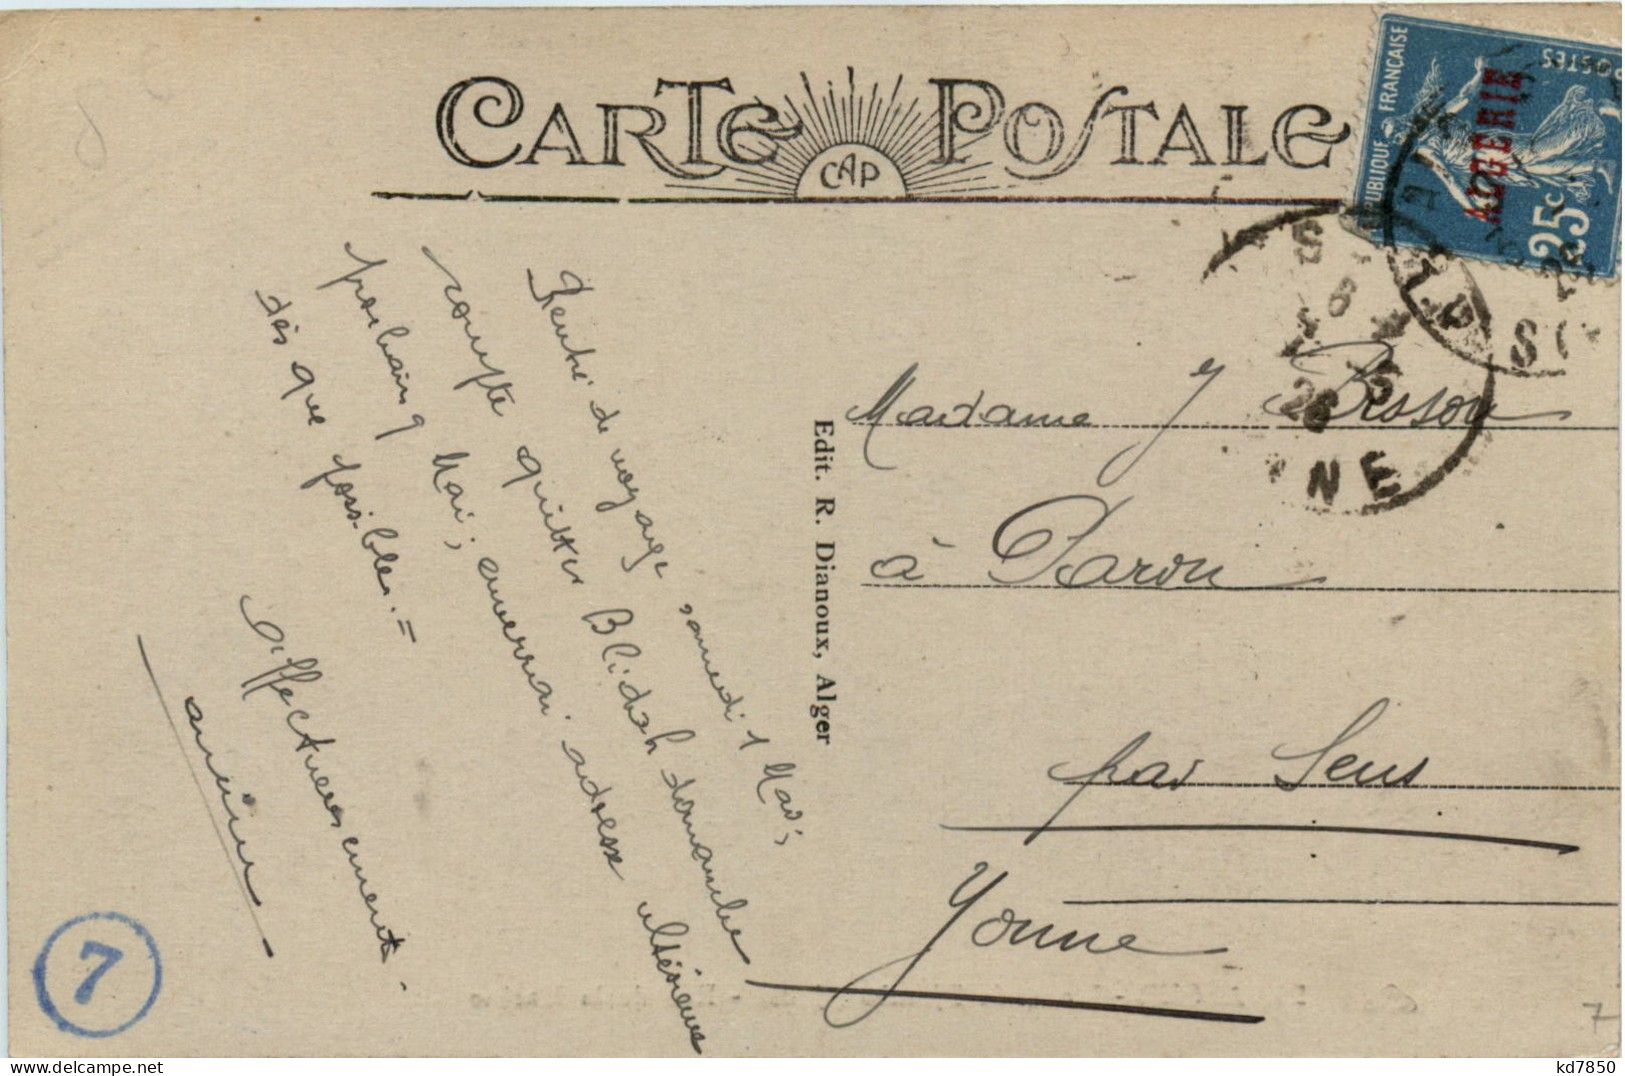 CARTE POSTALE
CAP
RÉPUBLIQUE FRANÇAISE
POSTES
ALGERIE
25c
26
NE
Rentré de voyage samedi 1 Mai;
compte quitter Blidah dimanche
prochain 9 Mai; enverrai adresse ultérieure
dès que possible. =
Affectueusement.
Edit. R. Dianoux, Alger
Madame J Bisson
à Paron
par Sens
Yonne
7
7
kd7850